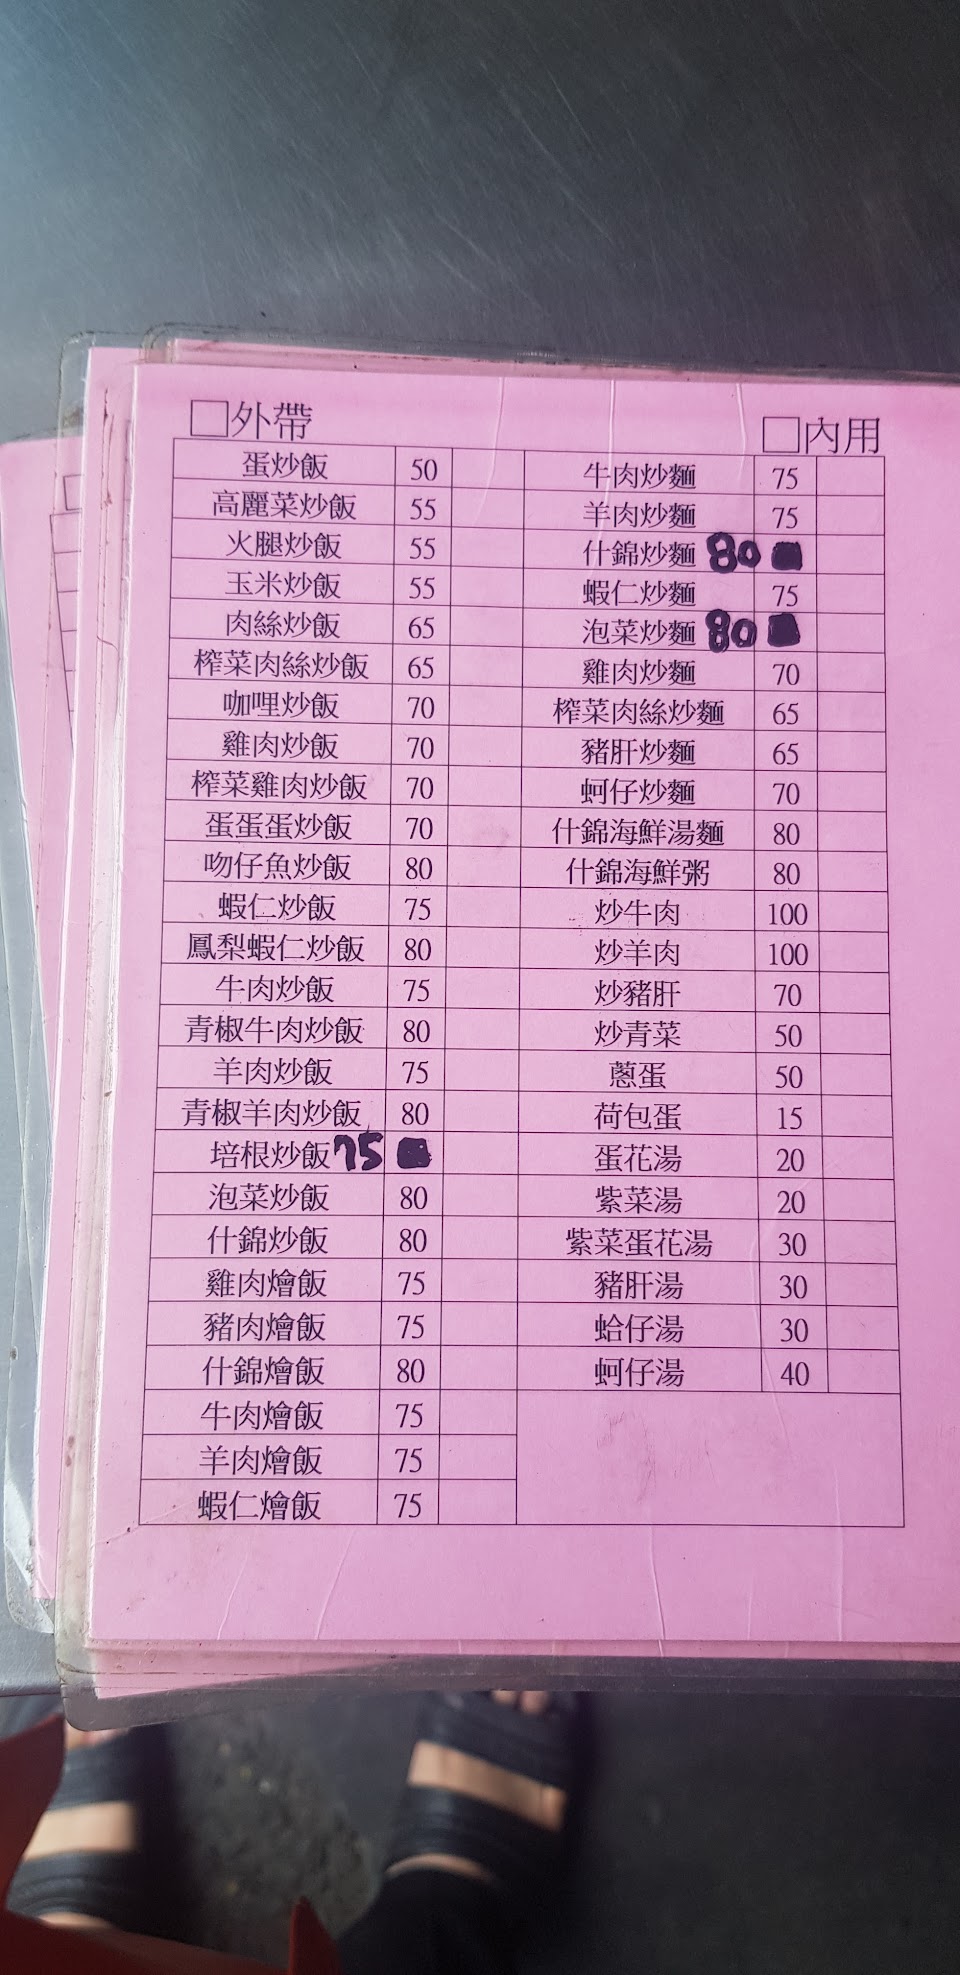 □外帶 □內用
蛋炒飯 50 牛肉炒麵 75
高麗菜炒飯 55 羊肉炒麵 75
火腿炒飯 55 什錦炒麵 80
玉米炒飯 55 蝦仁炒麵 75
肉絲炒飯 65 泡菜炒麵 80
榨菜肉絲炒飯 65 雞肉炒麵 70
咖哩炒飯 70 榨菜肉絲炒麵 65
雞肉炒飯 70 豬肝炒麵 65
榨菜雞肉炒飯 70 蚵仔炒麵 70
蛋蛋蛋炒飯 70 什錦海鮮湯麵 80
吻仔魚炒飯 80 什錦海鮮粥 80
蝦仁炒飯 75 炒牛肉 100
鳳梨蝦仁炒飯 80 炒羊肉 100
牛肉炒飯 75 炒豬肝 70
青椒牛肉炒飯 80 炒青菜 50
羊肉炒飯 75 蔥蛋 50
青椒羊肉炒飯 80 荷包蛋 15
培根炒飯 75 蛋花湯 20
泡菜炒飯 80 紫菜湯 20
什錦炒飯 80 紫菜蛋花湯 30
雞肉燴飯 75 豬肝湯 30
豬肉燴飯 75 蛤仔湯 30
什錦燴飯 80 蚵仔湯 40
牛肉燴飯 75
羊肉燴飯 75
蝦仁燴飯 75